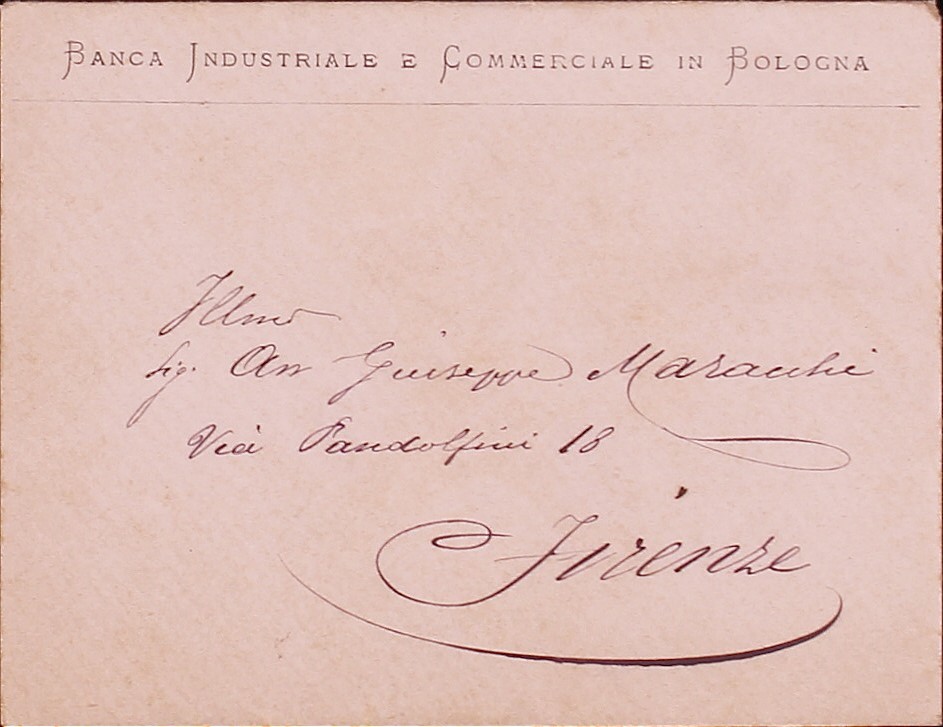 BANCA INDUSTRIALE E COMMERCIALE IN BOLOGNA
Illmo
Sig. Avv Giuseppe
Via Pandolfini 18
Firenze